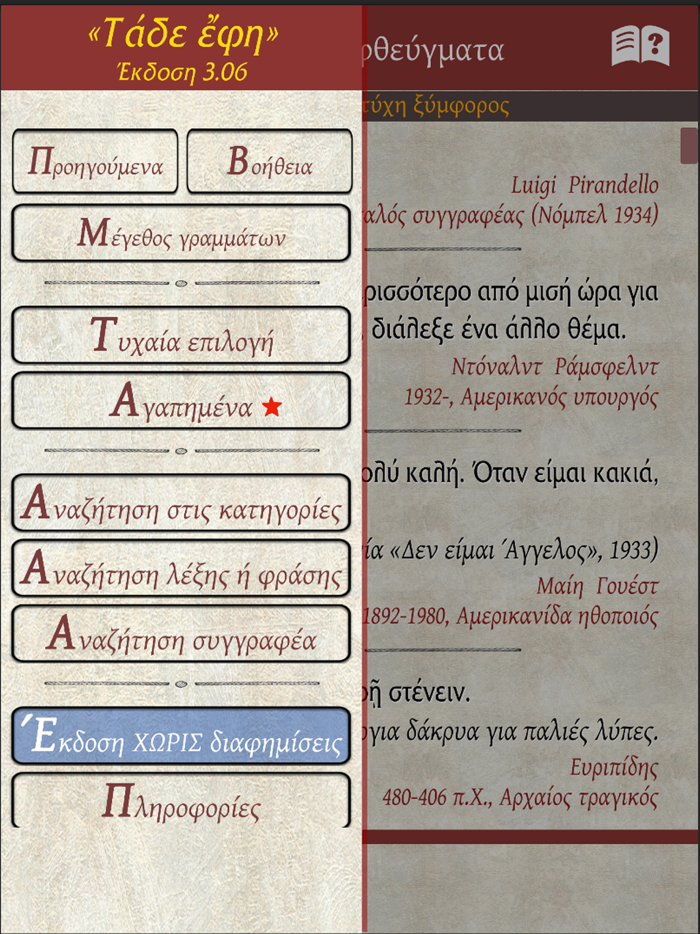 «Τάδε ἔφη»
Έκδοση 3.06
Προηγούμενα
Βοήθεια
Μέγεθος γραμμάτων
Τυχαία επιλογή
Αγαπημένα
Αναζήτηση στις κατηγορίες
Αναζήτηση λέξης ή φράσης
Αναζήτηση συγγραφέα
Έκδοση ΧΩΡΙΣ διαφημίσεις
Πληροφορίες
?
ξύμφορος
Luigi Pirandello
συγγραφέας (Νόμπελ 1934)
από μισή ώρα για
διάλεξε ένα άλλο θέμα.
Ντόναλντ Ράμσφελντ
1932-, Αμερικανός υπουργός
καλή. Όταν είμαι κακιά,
«Δεν είμαι Άγγελος», 1933)
Μαίη Γουέστ
1892-1980, Αμερικανίδα ηθοποιός
στένειν.
δάκρυα για παλιές λύπες.
Ευριπίδης
480-406 π.Χ., Αρχαίος τραγικός